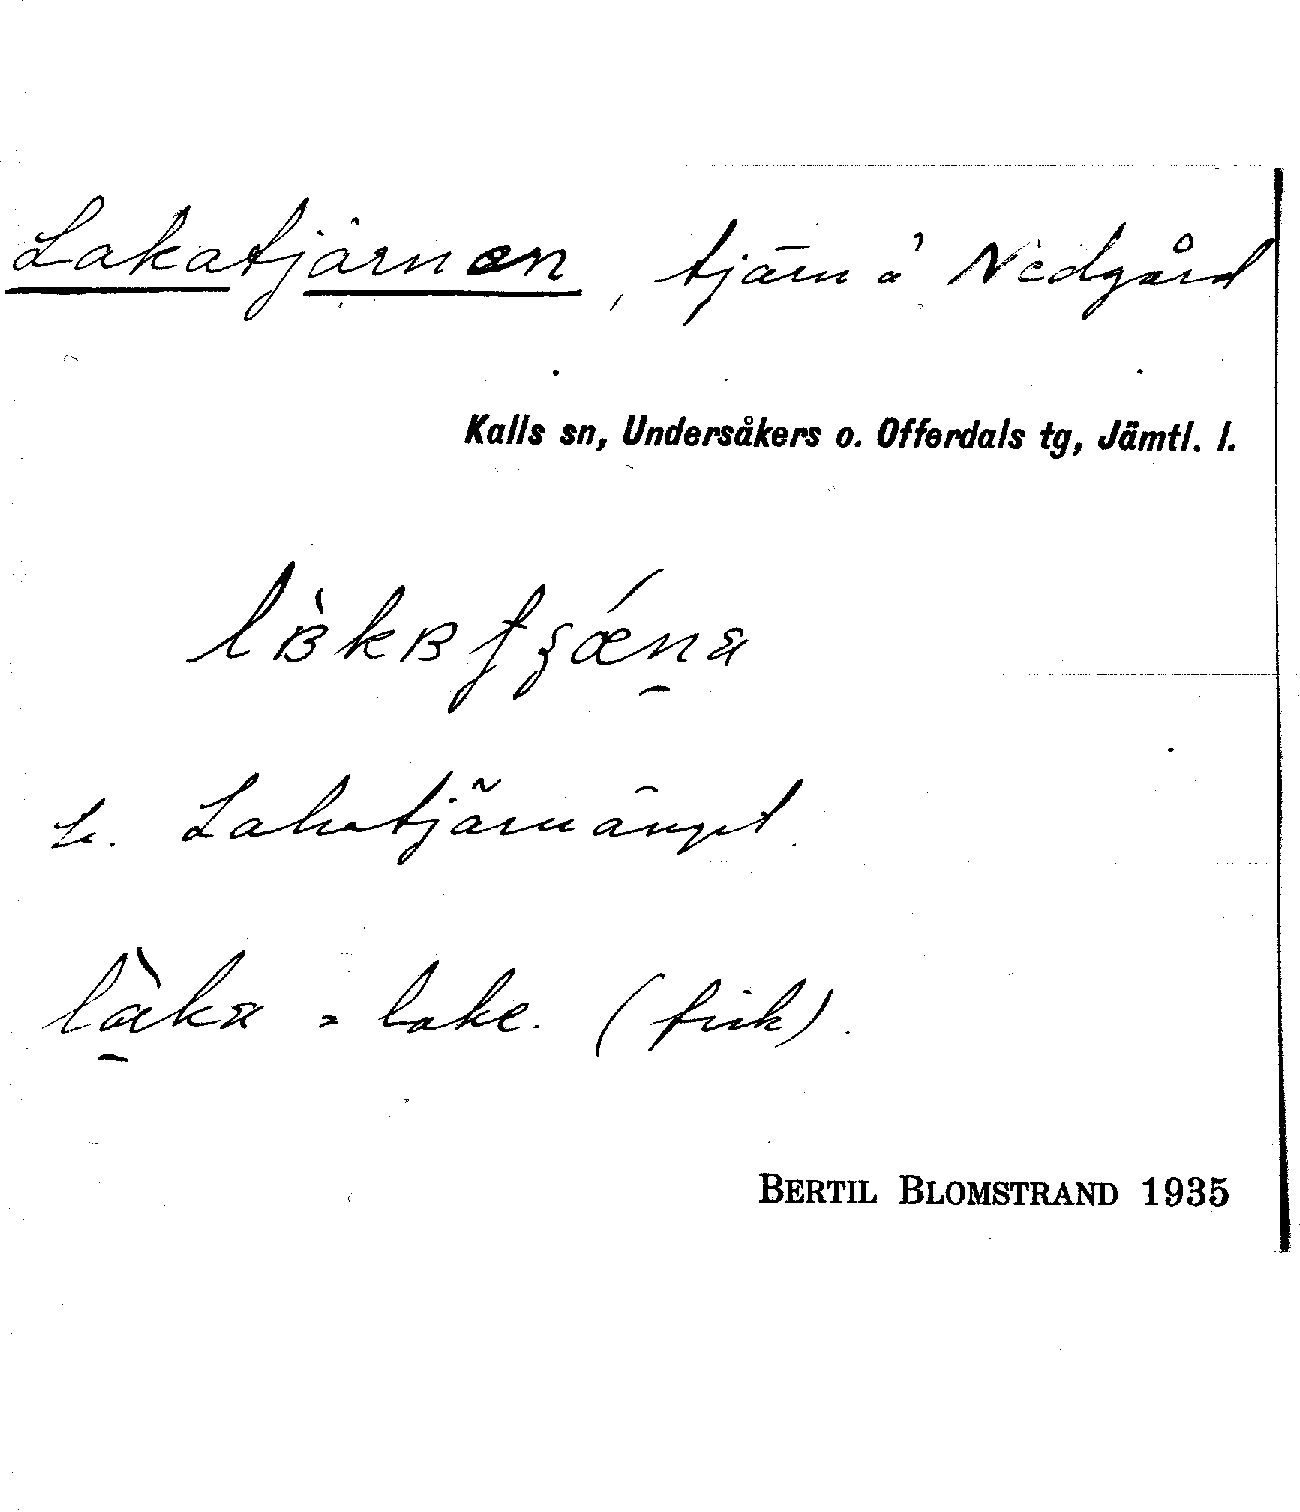 Lakatjärnen, tjärn å Nedgård
Kalls sn, Undersåkers o. Offerdals tg, Jämtl. l.
Lakatjärnänget.
= lake. (fisk).
BERTIL BLOMSTRAND 1935